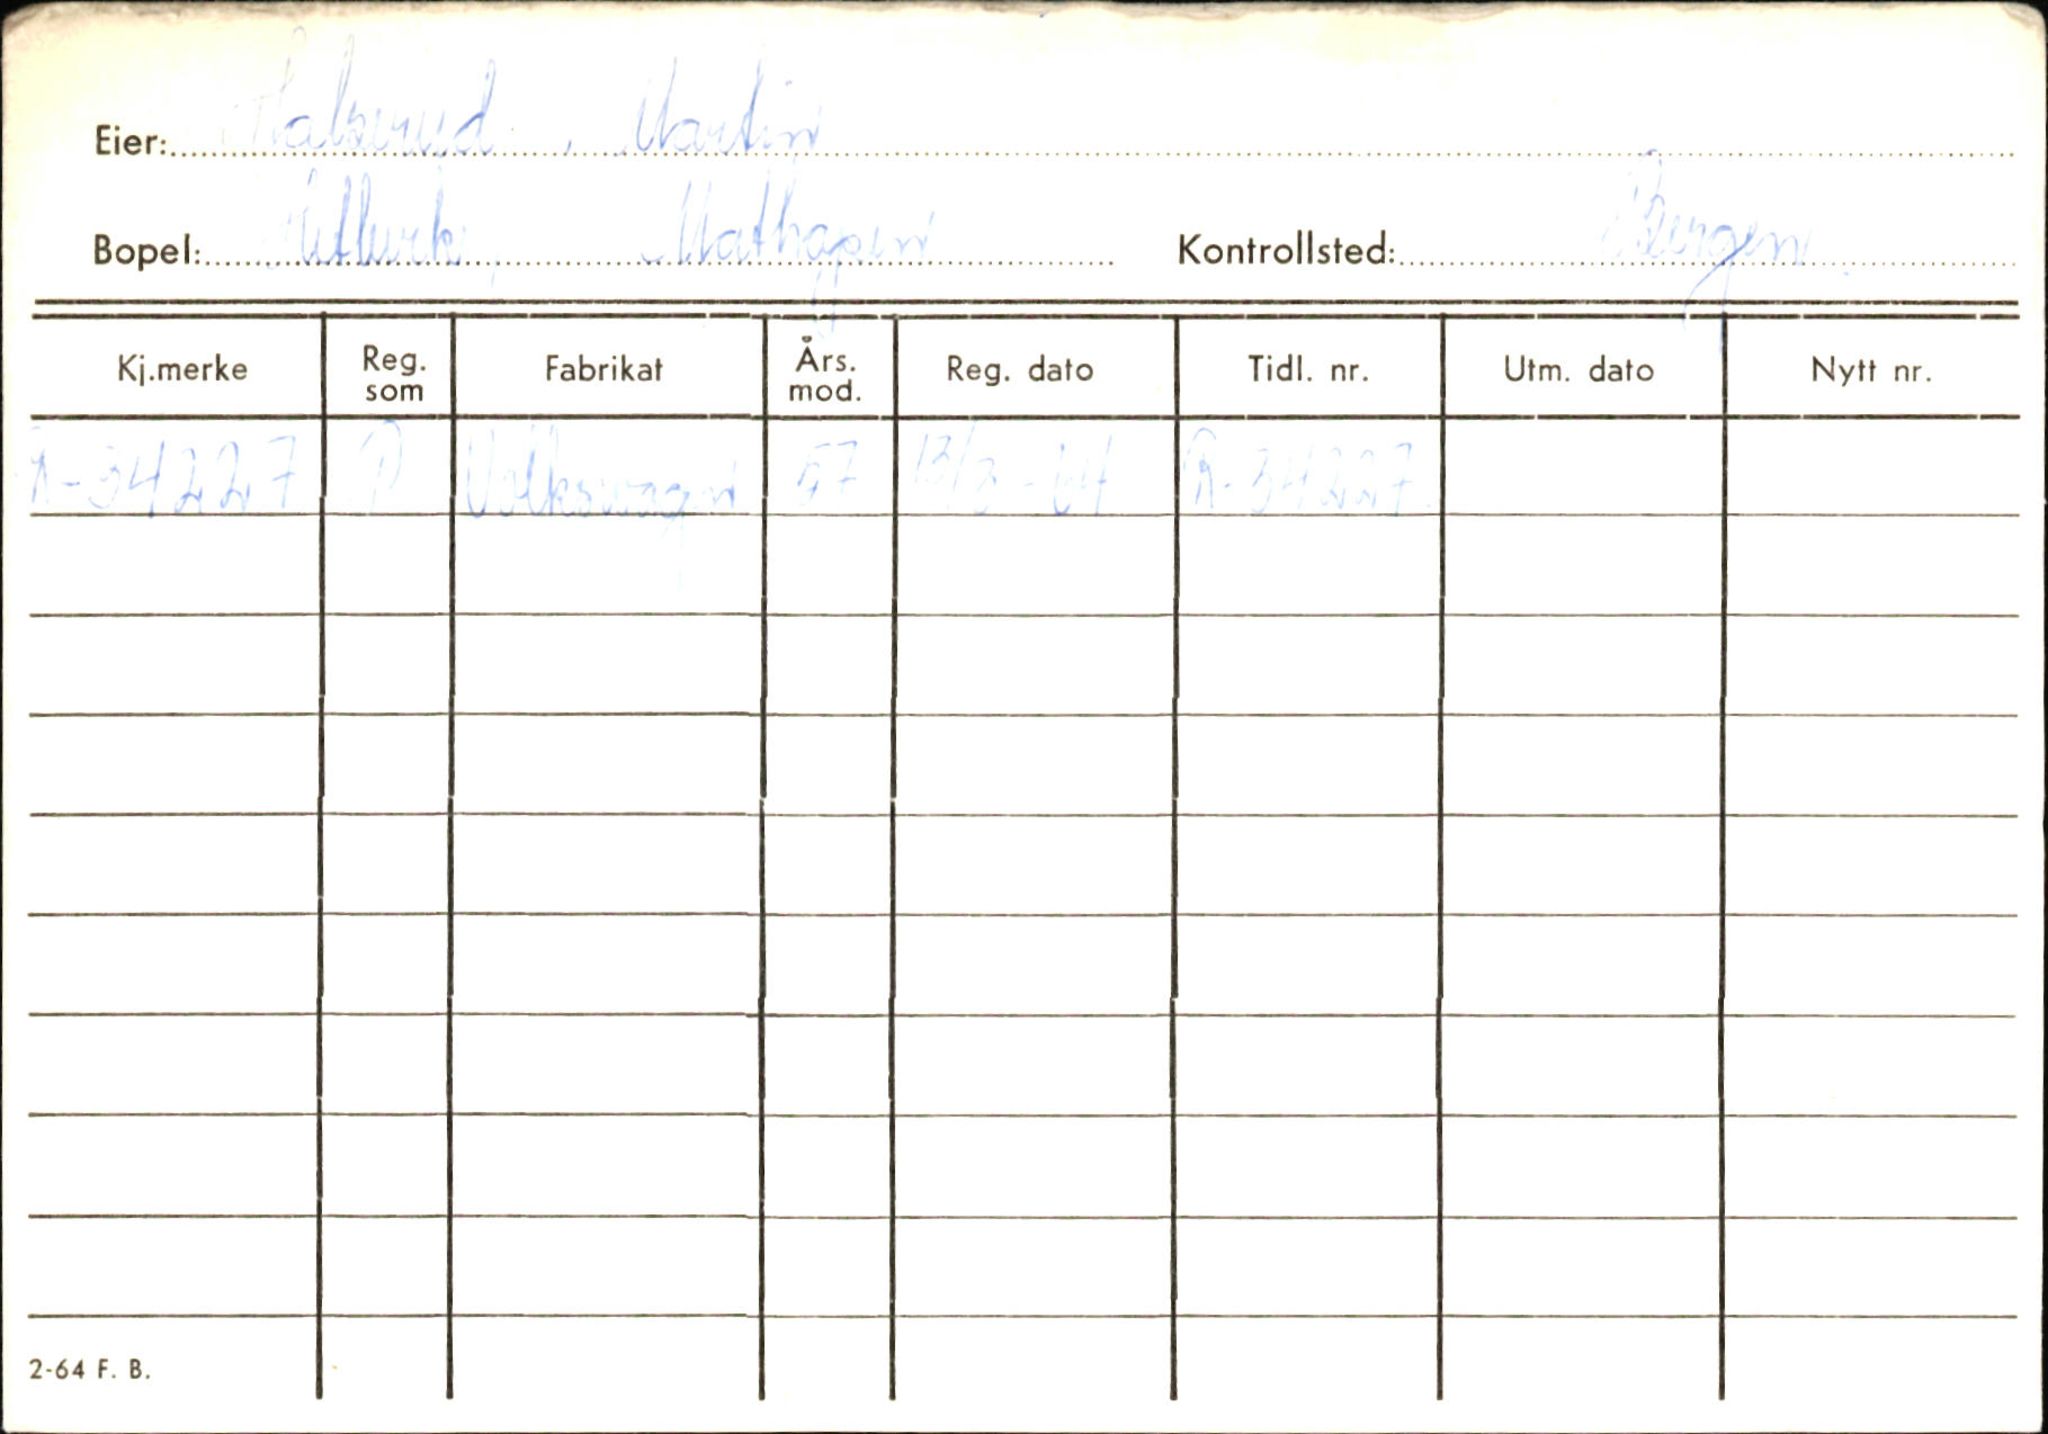 Eier: Halsrud, Martin
Bopel: Mathopen Kontrollsted: Bergen
Kj.merke Reg. som Fabrikat Års. mod. Reg. dato Tidl. nr. Utm. dato Nytt nr.
R-34227 P Volkswagen 57 13/3-64 R-34227
2-64 F. B.